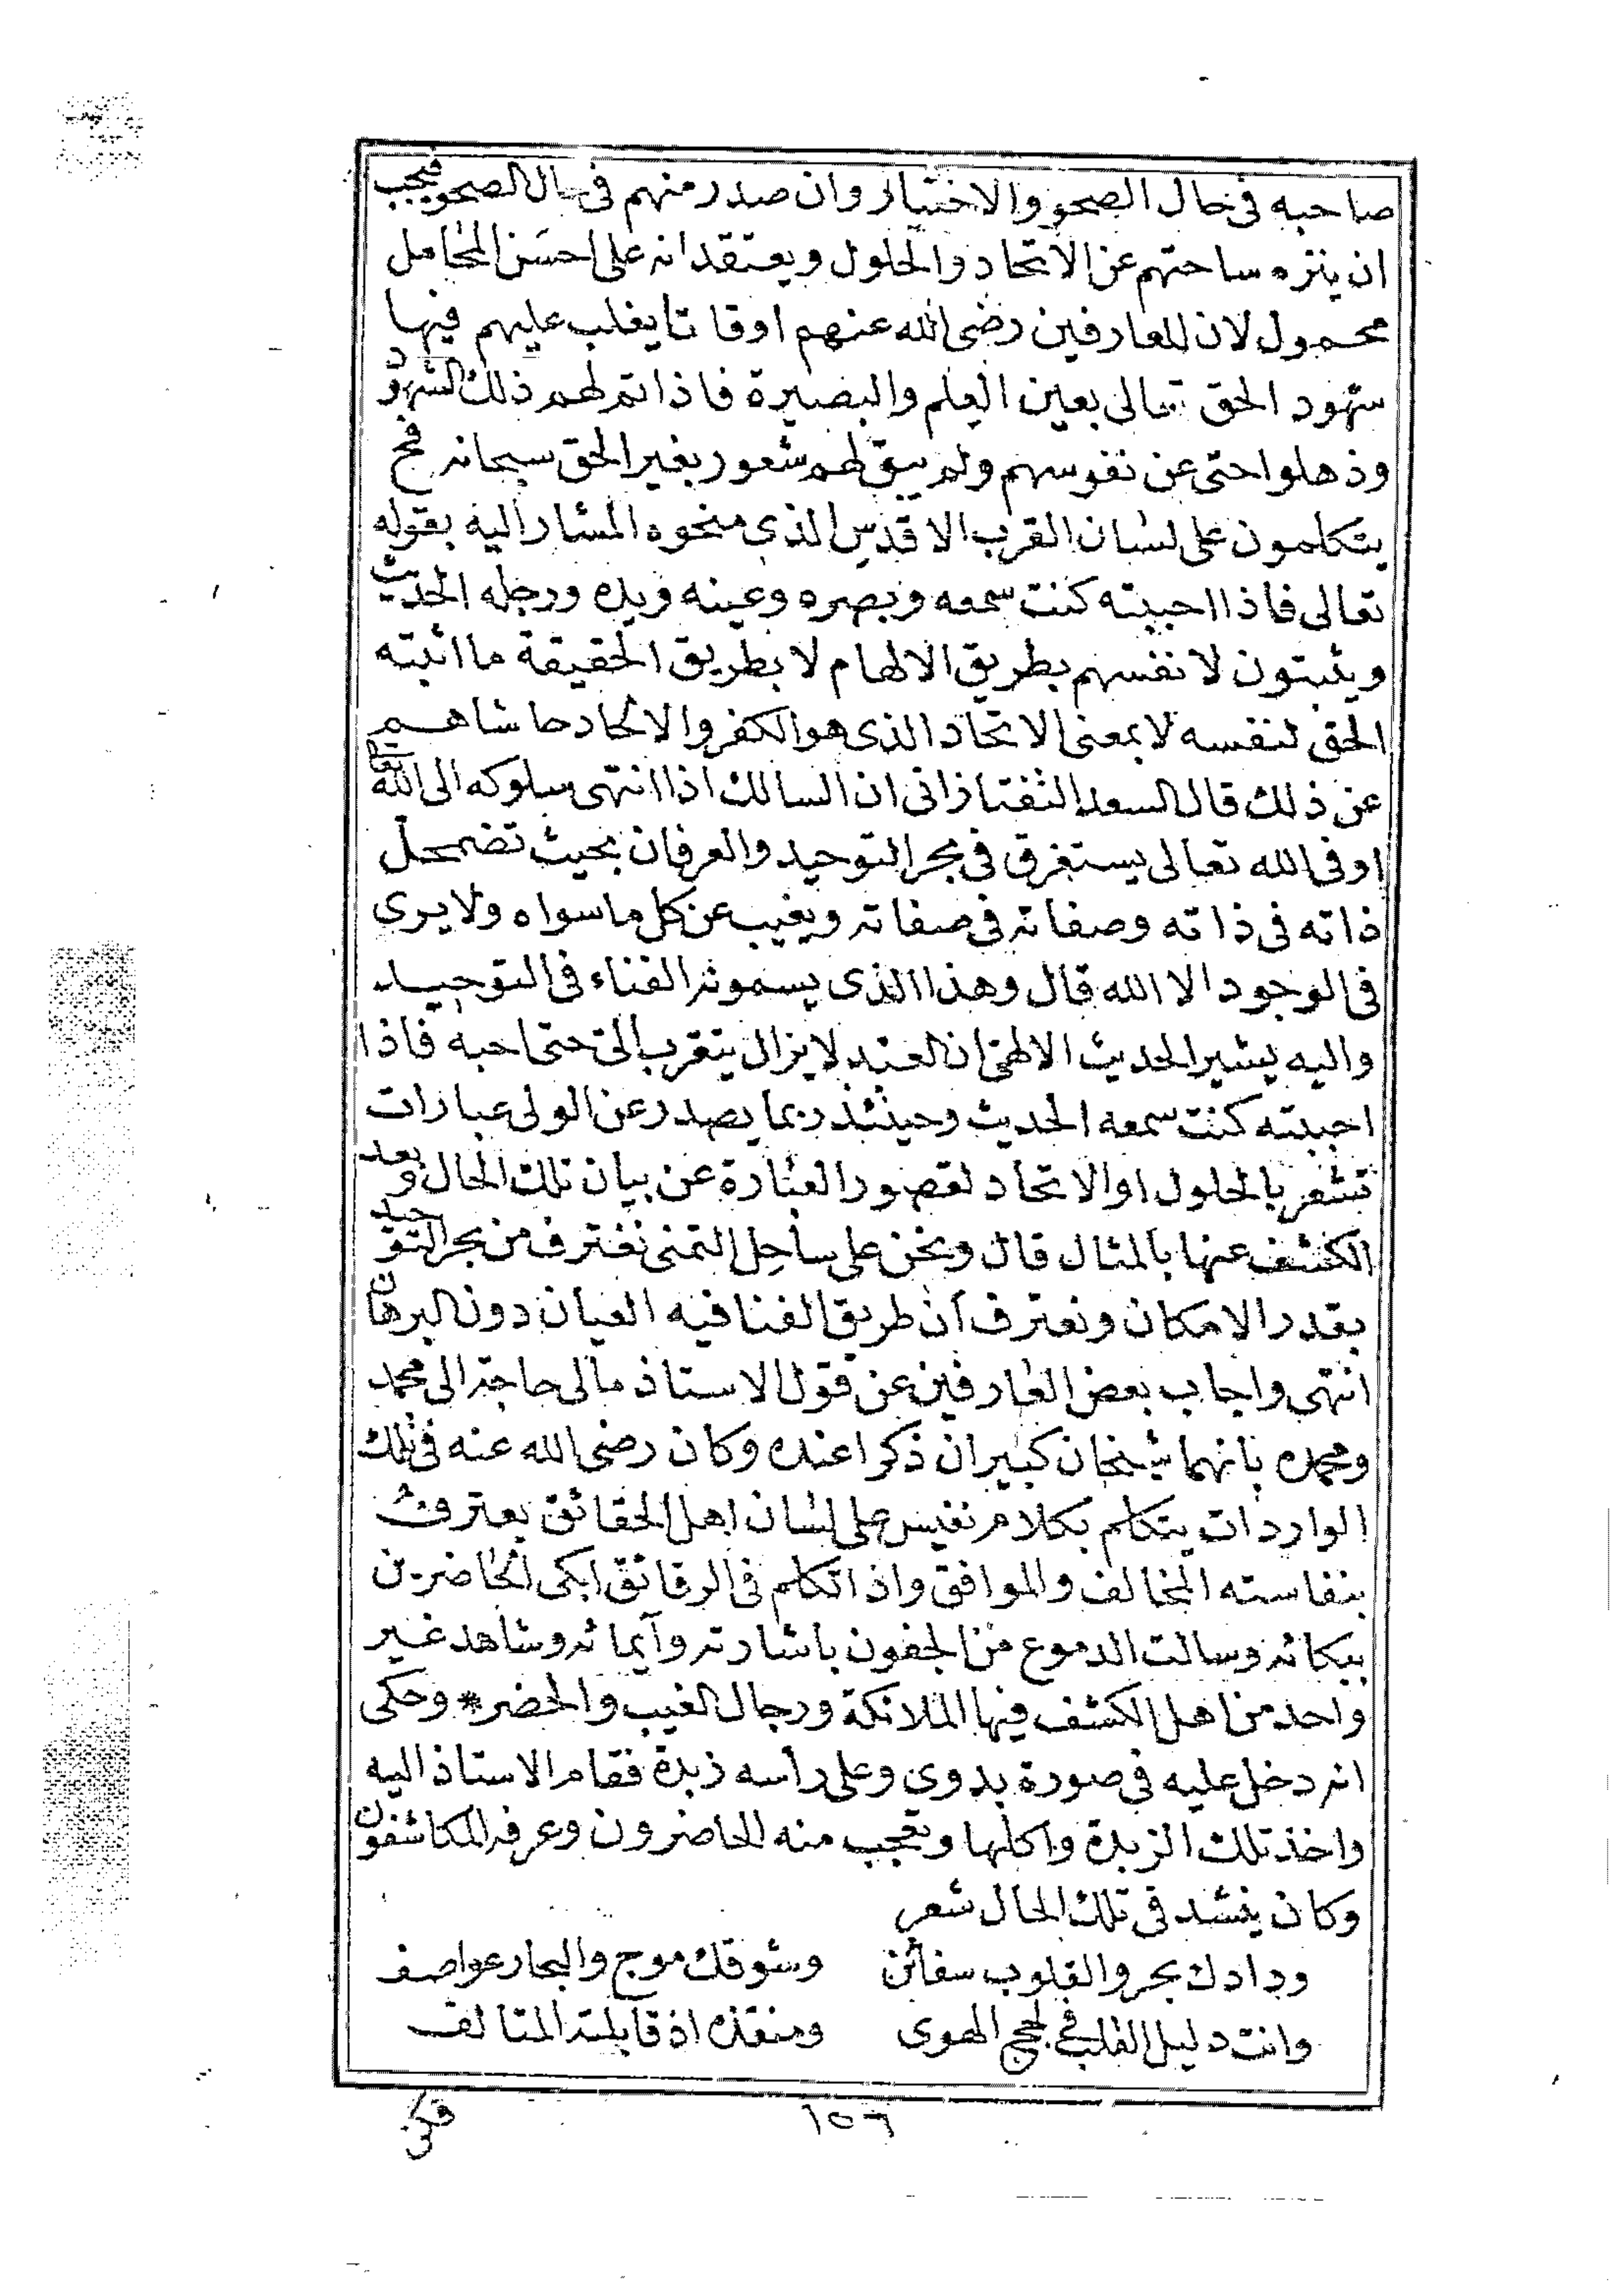 صاحبه فى حال الصحو والاختيار وان صدر منهم فى حال الصحو فيجب
ان ينزه ساحتهم عن الاتحاد والحلول ويعتقد انه على احسن المحامل
محمول لان للعارفين رضى الله عنهم اوقاتا يغلب عليهم فيها
شهود الحق تعالى بعين العلم والبصيرة فاذا تم لهم ذلك الشهود
وذهلوا حتى عن نفوسهم ولم يبق لهم شعور بغير الحق سبحانه فح
يتكلمون على لسان القرب الاقدس الذى منحوه المشار اليه بقوله
تعالى فاذا احببته كنت سمعه وبصره وعينه ويده ورجله الحديث
ويثبتون لانفسهم بطريق الالهام لا بطريق الحقيقة ما اثبته
الحق لنفسه لا بمعنى الاتحاد الذى هو الكفر والالحاد حاشاهم
عن ذلك قال السعد التفتازانى ان السالك اذا انتهى سلوكه الى الله تعالى
او فى الله تعالى يستغرق فى بحر التوحيد والعرفان بحيث تضمحل
ذاته فى ذاته وصفاته فى صفاته ويغيب عن كل ما سواه ولا يرى
فى الوجود الا الله قال وهذا الذى يسمونه الفناء فى التوحيد
واليه يشير الحديث الالهى ان العبد لا يزال يتقرب الى حتى احبه فاذا
احببته كنت سمعه الحديث وحينئذ ربما يصدر عن الولى عبارات
تشعر بالحلول او الاتحاد لقصور العبارة عن بيان تلك الحال وبعد
الكشف عنها بالمثال قال ونحن على ساحل التمنى نغترف من بحر التوحيد
بقدر الامكان ونعترف ان طريق الفنا فيه العيان دون البرهان
انتهى واجاب بعض العارفين عن قول الاستاذ مالى حاجة الى محمد
ومحمده بانهما شيخان كبيران ذكرا عنده وكان رضى الله عنه فى تلك
الواردات يتكلم بكلام نفيس على لسان اهل الحقائق يعترف
بنفاسته المخالف والموافق واذا تكلم فى الرقائق ابكى الحاضرين
ببكائه وسالت الدموع من الجفون باشارته وآيمائه وشاهد غير
واحد من اهل الكشف فيها الملائكة ورجال الغيب والخضر * وحكى
انه دخل عليه فى صورة بدوى وعلى رأسه زبدة فقام الاستاذ اليه
واخذ تلك الزبدة واكلها وتعجب منه الحاضرون وعرفه المكاشفون
وكان ينشد فى تلك الحال شعر
ودادك بحر والقلوب سفائن وشوقك موج والبحار عواصف
وانت دليل القلب فى لجج الهوى ومنقذه اذ قابلته المتالف
١٥٦